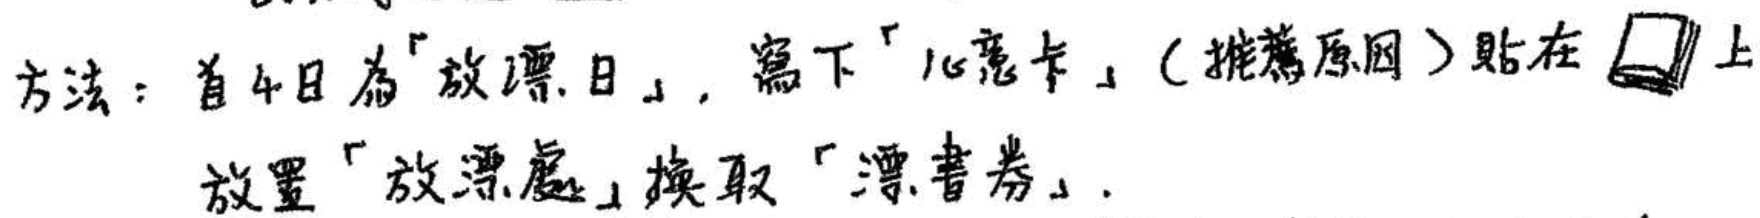 方法：首4日為「放漂日」，寫下「心意卡」（推薦原因）貼在上
放置「放漂處」換取「漂書券」.